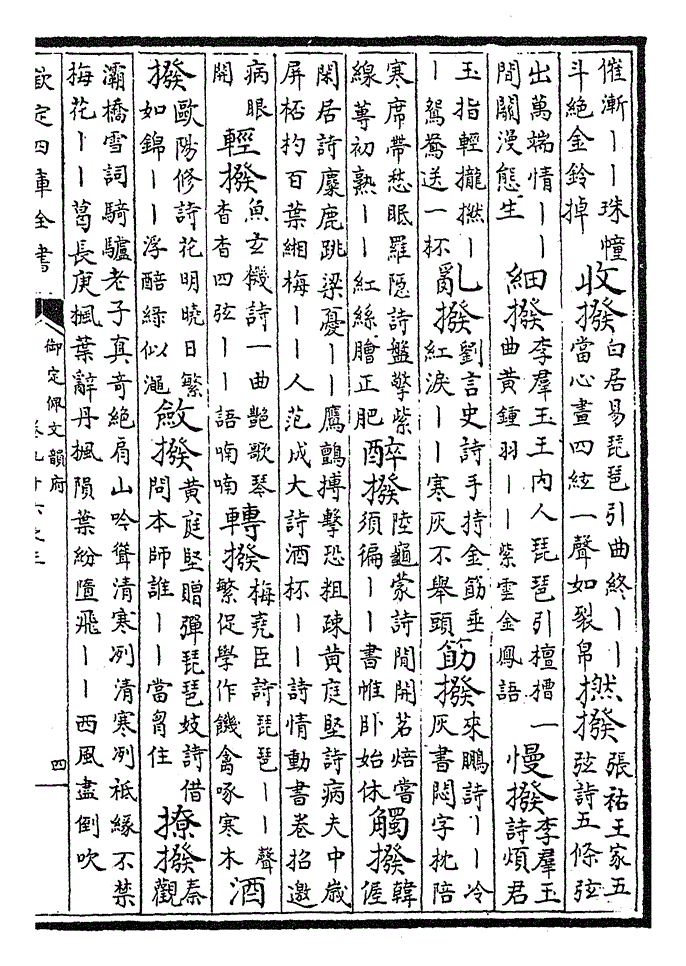 催漸丨丨珠幢
斗絶金鈴掉
收撥
白居易琵琶引曲終丨丨
當心畫四絃一聲如裂帛
撚撥
張祜王家五
弦詩五條弦
出萬端情丨丨
間關漫態生
細撥
李羣玉王内人琵琶引檀槽一
曲黄鍾羽丨丨紫雲金鳳語
慢撥
李羣玉
詩煩君
玉指輕攏撚丨
丨鴛鴦送一杯
亂撥
劉言史詩手持金筯垂
紅淚丨丨寒灰不舉頭
筯撥
來鵬詩丨丨冷
灰書悶字枕陪
寒席帶愁眠羅隱詩盤擎紫
線蓴初熟丨丨紅絲膾正肥
醉撥
陸龜蒙詩閒開茗焙嘗
須徧丨丨書帷卧始休
觸撥
韓
偓
閑居詩麋鹿跳梁憂丨丨鷹鸇搏擊恐粗疎黄庭堅詩病夫中嵗
屏桮杓百葉緗梅丨丨人范成大詩酒杯丨丨詩情動書卷招邀
病眼
開
輕撥
魚玄機詩一曲艶歌琴
杳杳四弦丨丨語喃喃
轉撥
梅堯臣詩琵琶丨丨聲
繁促學作饑禽啄寒木
酒
撥
歐陽修詩花明曉日繁
如錦丨丨浮醅緑似澠
斂撥
黄庭堅贈彈琵琶妓詩借
問本師誰丨丨當胷住
撩撥
秦
觀
灞橋雪詞騎驢老子真竒絶肩山吟聳清寒冽清寒冽祗緣不禁
梅花丨丨葛長庚楓葉辭丹楓隕葉紛墮飛丨丨西風盡倒吹
欽定四庫全書
御定佩文韻府
卷九十六之三
四